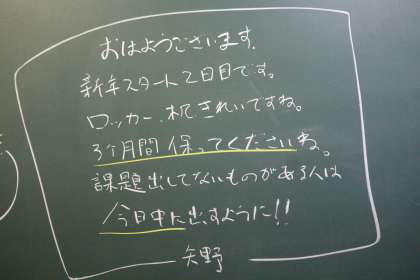 おはようございます.
新年スタート2日目です。
ロッカー、机きれいですね。
3ケ月間保ってくださいね。
課題出してないものがある人は
今日中に出すように!!
矢野